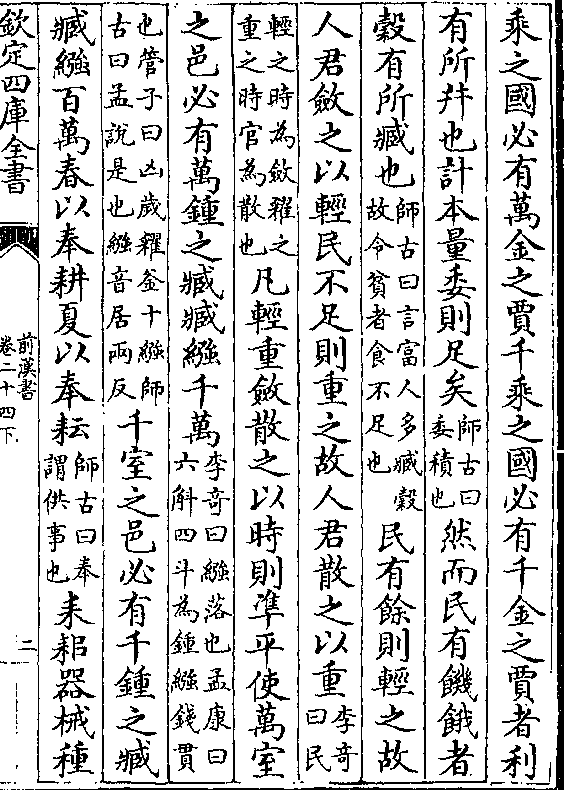 乘之國必有萬金之賈千乘之國必有千金之賈者利
有所并也計本量委則足矣師古曰委積也然而民有饑餓者
穀有所臧也師古曰言富人多臧穀故令貧者食不足也民有餘則輕之故
人君斂之以輕民不足則重之故人君散之以重李奇曰民
輕之時為斂糴之重之時官為散也凡輕重斂散之以時則準平使萬室
之邑必有萬鍾之臧臧繦千萬李奇曰繦落也孟康曰六斛四斗為鍾繦錢貫
也管子曰凶歲糴釜十繦師古曰孟說是也繦音居兩反千室之邑必有千鍾之臧
臧繦百萬春以奉耕夏以奉耘師古曰奉謂供事也耒耜器械種
欽定四庫全書
前漢書
卷二十四下
二